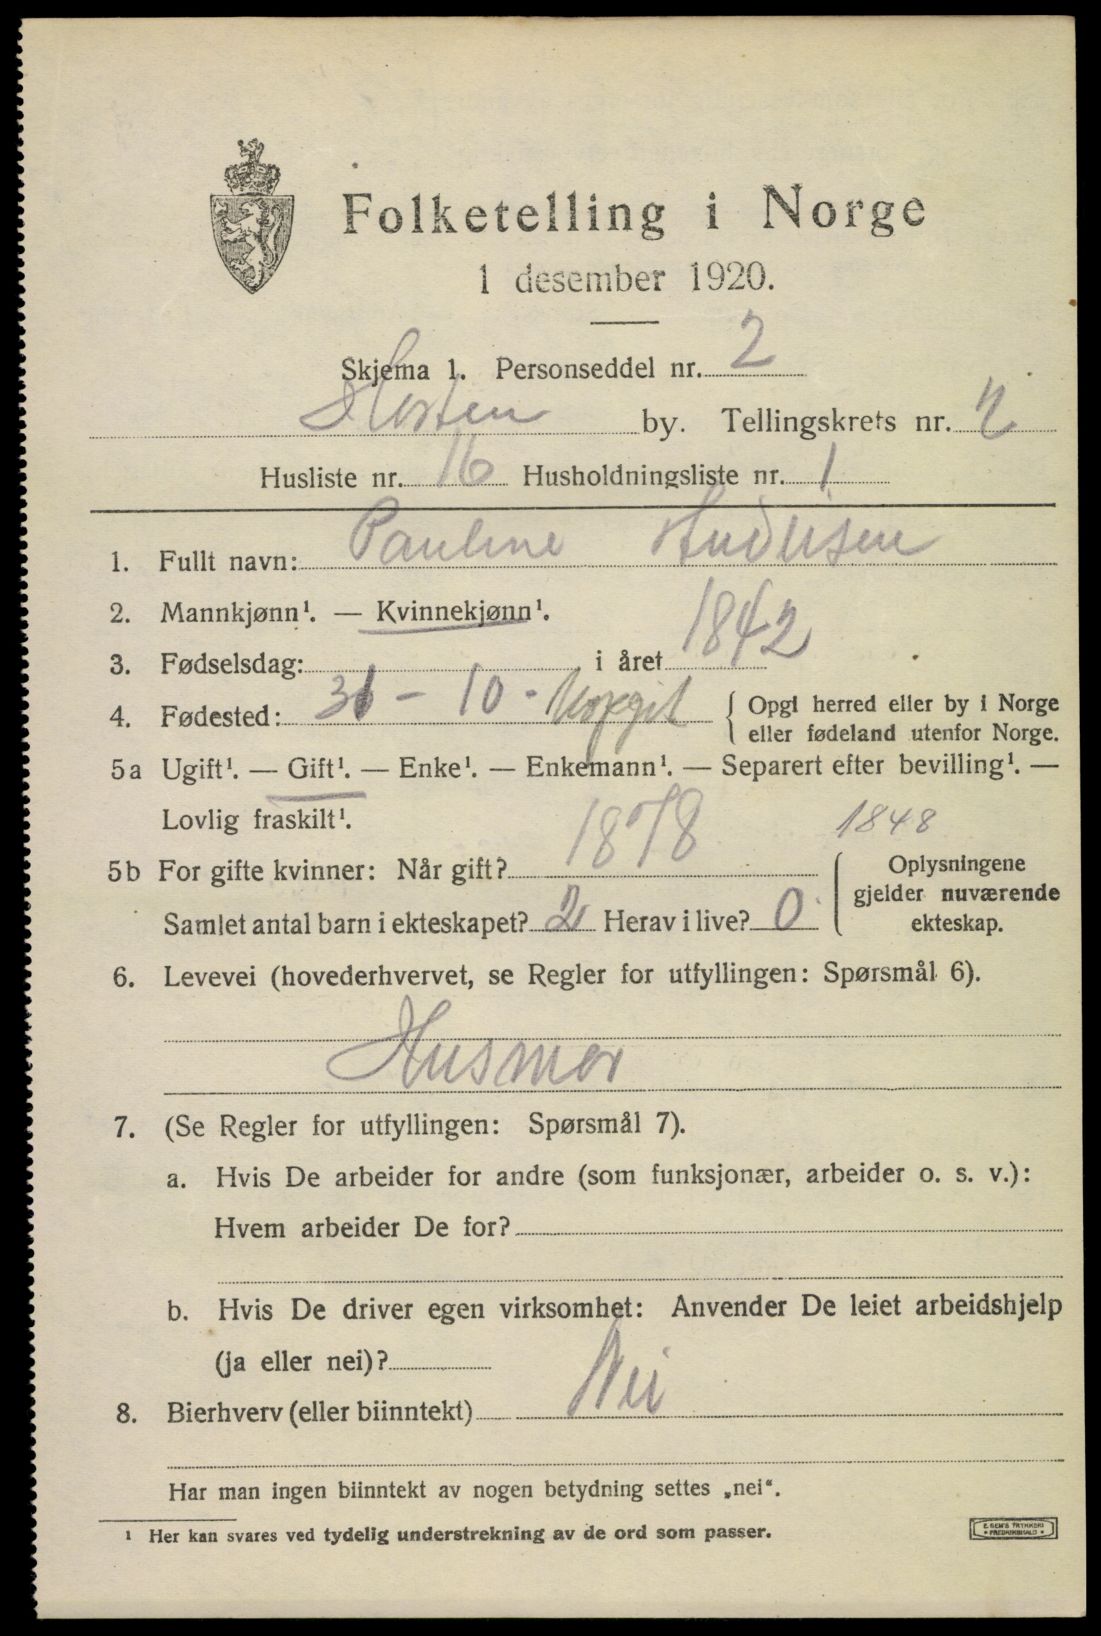 Folketelling i Norge
1 desember 1920.
Skjema 1. Personseddel nr. 2
Horten by. Tellingskrets nr. 2
Husliste nr. 16 Husholdningsliste nr. 1
1. Fullt navn: Pauline Andersen
2. Mannkjønn¹. — Kvinnekjønn¹.
3. Fødselsdag: i året 1842
4. Fødested: 31 - 10 - { Opgi herred eller by i Norge
eller fødeland utenfor Norge.
5a Ugift¹. — Gift¹. — Enke¹. — Enkemann¹. — Separert efter bevilling¹. —
Lovlig fraskilt¹.
1848
5b For gifte kvinner: Når gift? 1878 { Oplysningene
gjelder nuværende
Samlet antal barn i ekteskapet? 2 Herav i live? 0 ekteskap.
6. Levevei (hovederhvervet, se Regler for utfyllingen: Spørsmål 6).
Husmor
7. (Se Regler for utfyllingen: Spørsmål 7).
a. Hvis De arbeider for andre (som funksjonær, arbeider o. s. v.):
Hvem arbeider De for?
b. Hvis De driver egen virksomhet: Anvender De leiet arbeidshjelp
(ja eller nei)?
8. Bierhverv (eller biinntekt) Nei
Har man ingen biinntekt av nogen betydning settes „nei“.
¹ Her kan svares ved tydelig understrekning av de ord som passer.